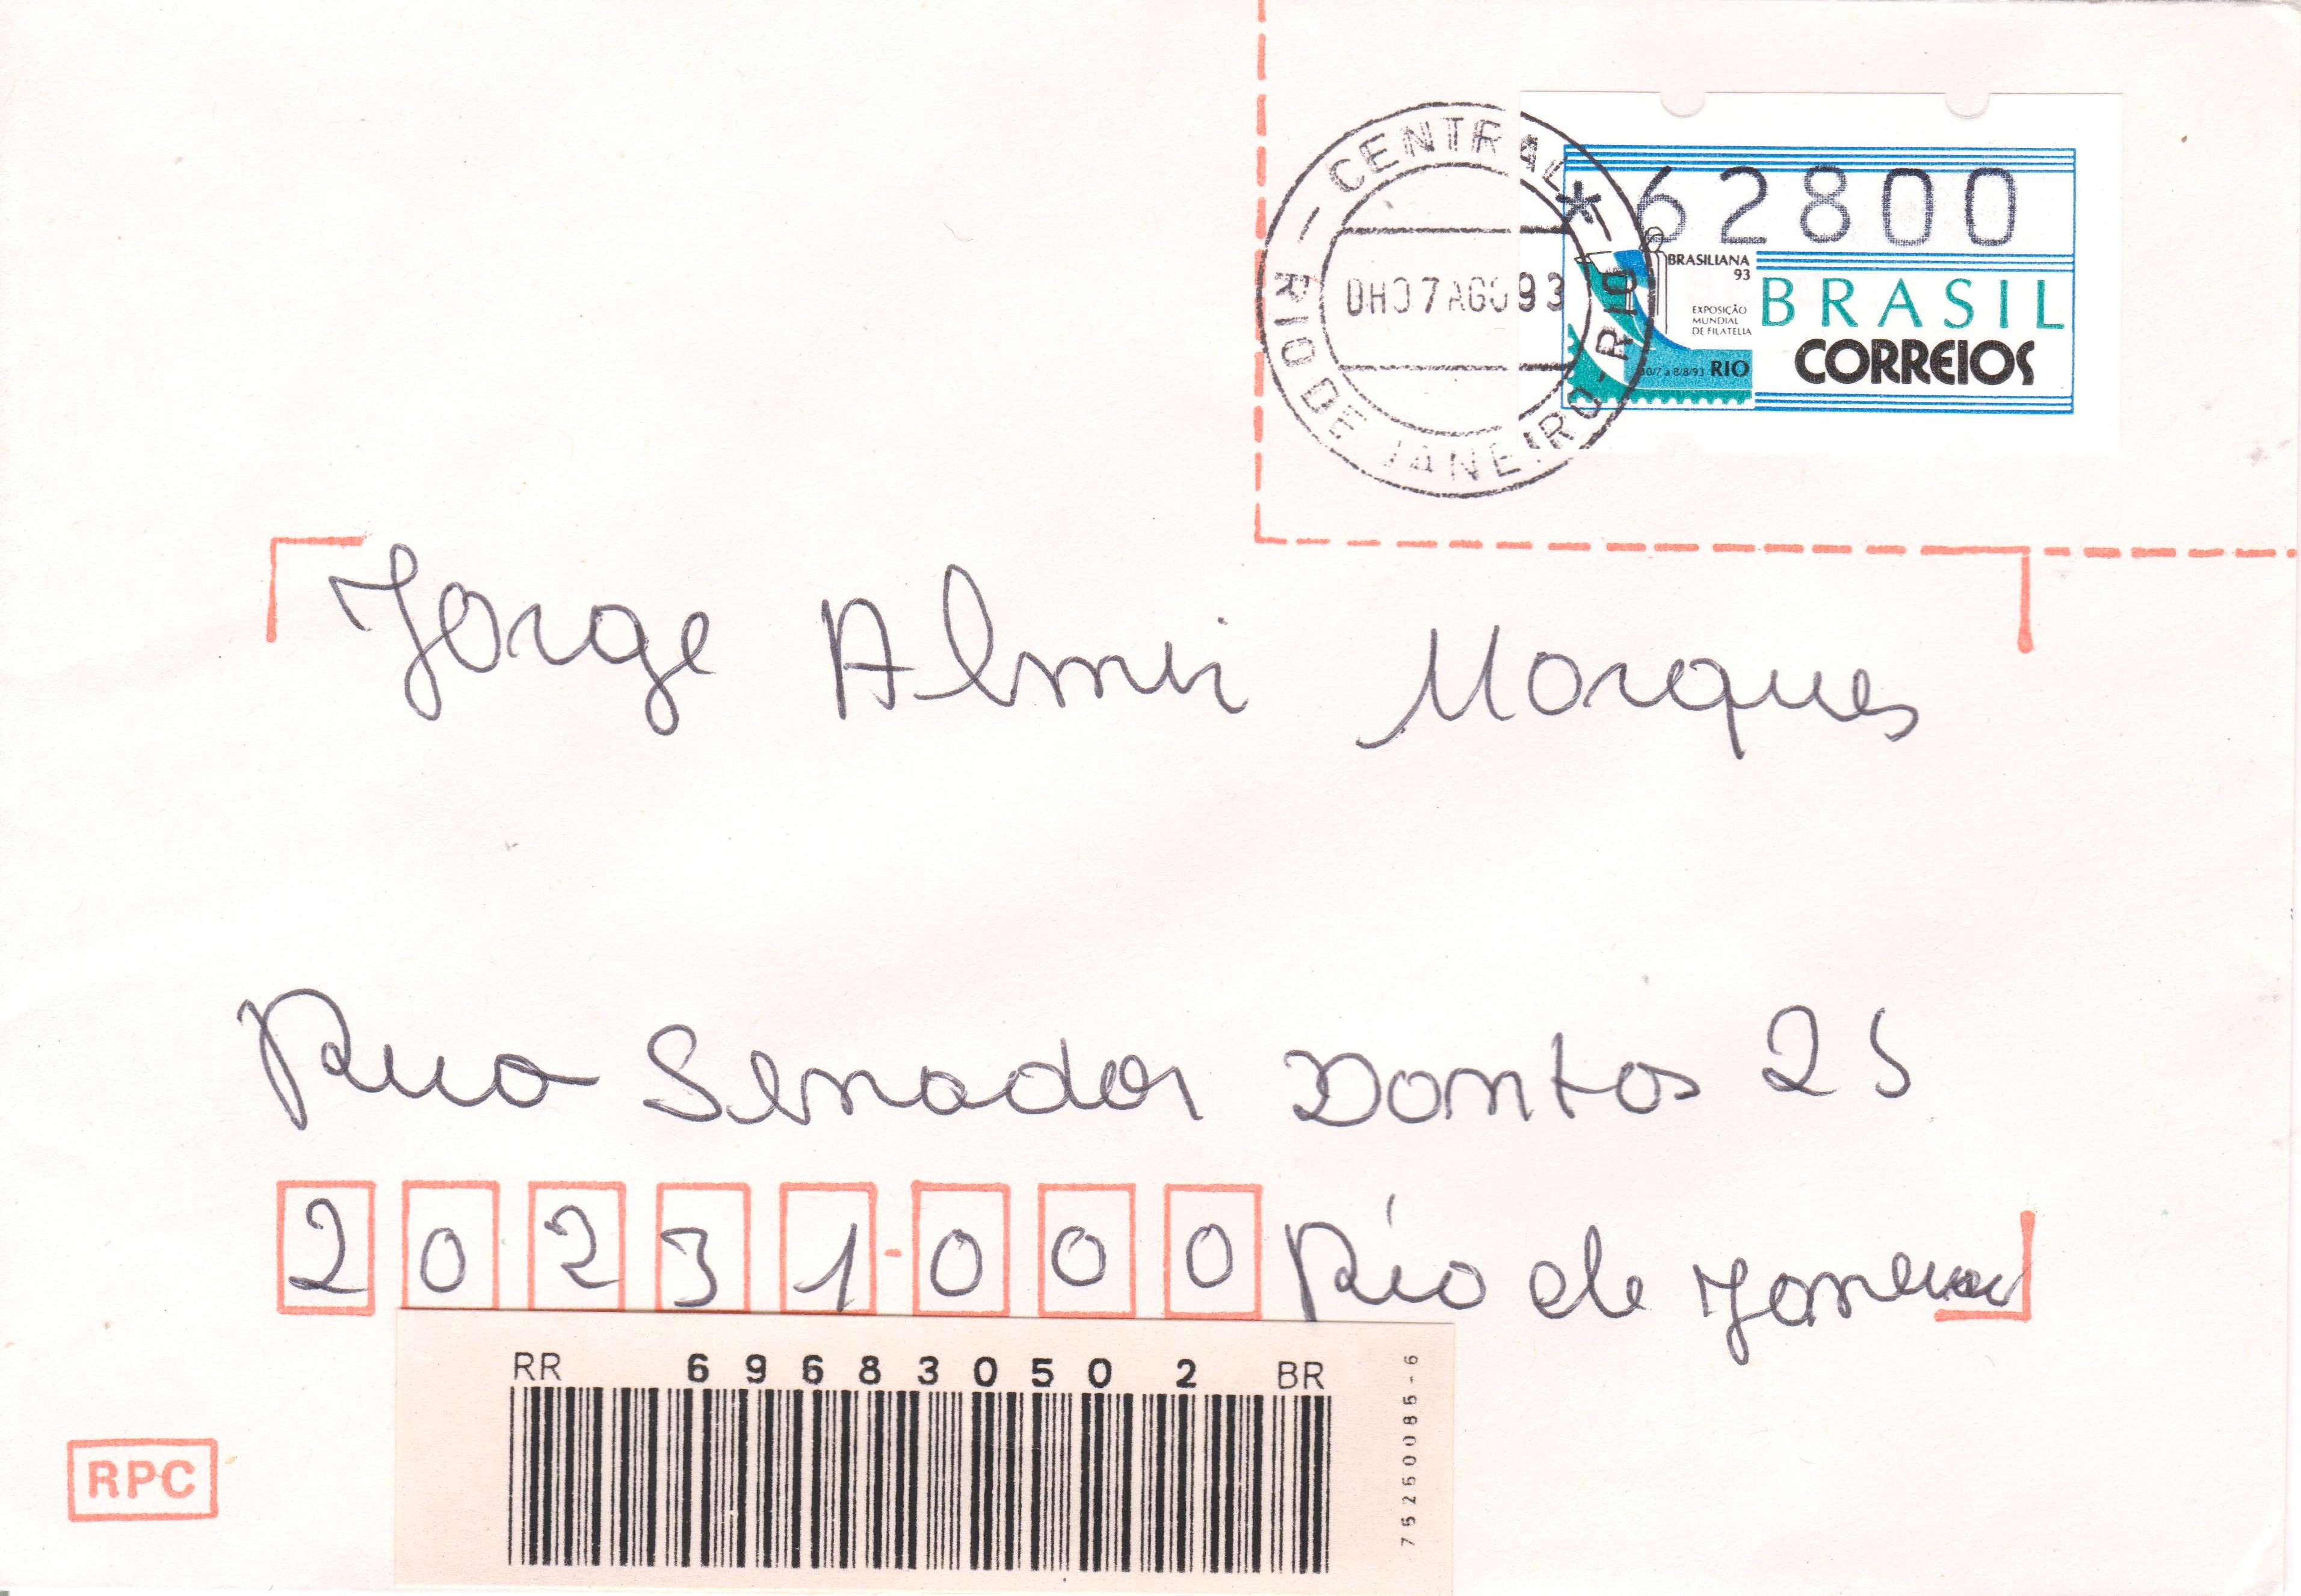 CENTRAL
RIO DE JANEIRO - RIO
DH07AGO93
*62800
BRASILIANA
93
EXPOSIÇÃO
MUNDIAL
DE FILATELIA
30/7 a 8/8/93 RIO
BRASIL
CORREIOS
Jorge Almir Marques
Rua Senador Dantas 25
20231-000 Rio de Janeiro
RR 69683050 2 BR
75250085-6
RPC